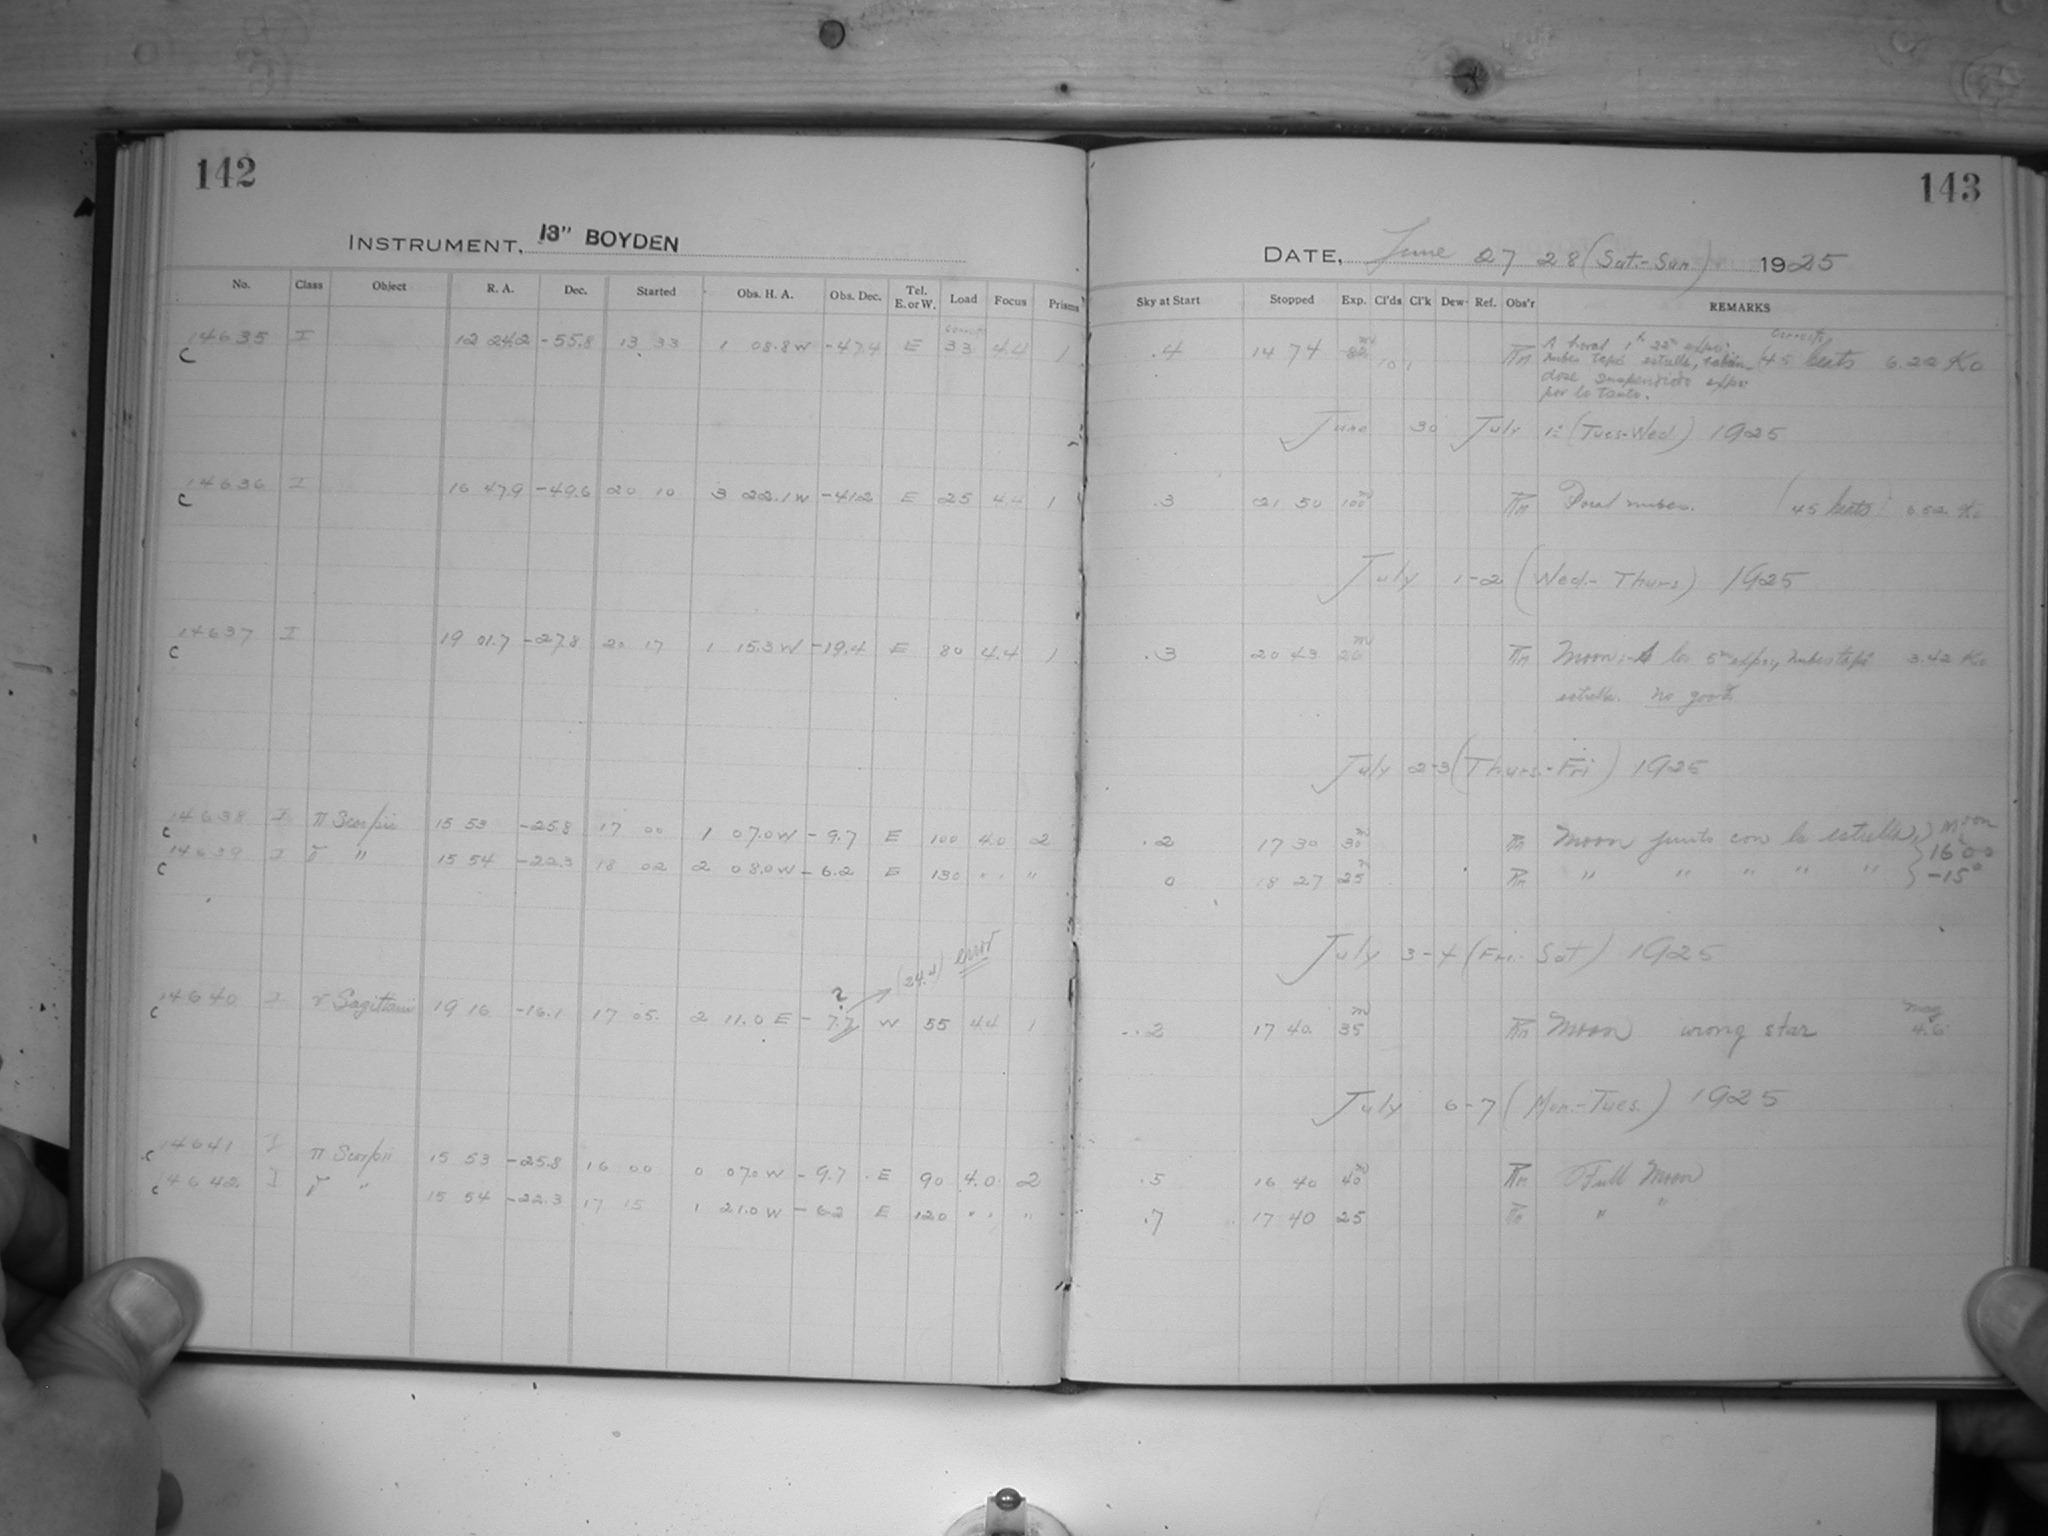 142
INSTRUMENT, 13" BOYDEN
No. Class Object R. A. Dec. Started Obs. H. A. Obs. Dec. Tel. E. or W. Load Focus Prisms
14635 I 12 24.2 -55.8 13 33 1 08.8 W -47.4 E 33 4.4 1
C
14636 I 16 47.9 -49.6 20 10 3 22.1 W -41.2 E 25 4.4 1
C
14637 I 19 01.7 -27.8 20 17 1 15.3 W -19.4 E 80 4.4 1
C
14638 I π Scorpii 15 53 -25.8 17 00 1 07.0 W -9.7 E 100 4.0 2
C
14639 I " 15 54 -22.3 18 02 2 08.0 W -6.2 E 130 " " "
C
? (24.4) error
14640 I Sagittarii 19 16 -16.1 17 05 2 11.0 E -7.7 W 55 4.4 1
C
14641 I π Scorpii 15 53 -25.8 16 00 0 07.0 W -9.7 E 90 4.0 2
C
14642 I " 15 54 -22.3 17 15 1 21.0 W -6.2 E 120 " " "
C
143
DATE, June 27 28 (Sat.-Sun) 1925
Sky at Start Stopped Exp. Cl'ds Cl'k Dew Ref. Obs'r REMARKS
.4 14 74 10 1 A horal 1h 22m expo: 45 beats 6.22 Ko
nubes tapó estrella, habién-
dose suspendido expo:
por lo tanto.
June 30 July 1 (Tues-Wed) 1925
.3 21 50 100m nubes. (45 beats) 6.52 Ko
July 1-2 (Wed.-Thurs) 1925
.3 20 43 26m Moon:- A los 5m expo, nubes tapó 3.42 Ko
estrella. no good
July 2-3 (Thurs.-Fri) 1925
.2 17 30 30m Moon junto con la estrella, } Moon
0 18 27 25m " " " " " } 16 00 -15°
July 3-4 (Fri.-Sat) 1925
.2 17 40 35m Moon wrong star mag 4.6
July 6-7 (Mon.-Tues.) 1925
.5 16 40 40m Full Moon
.7 17 40 25 " "